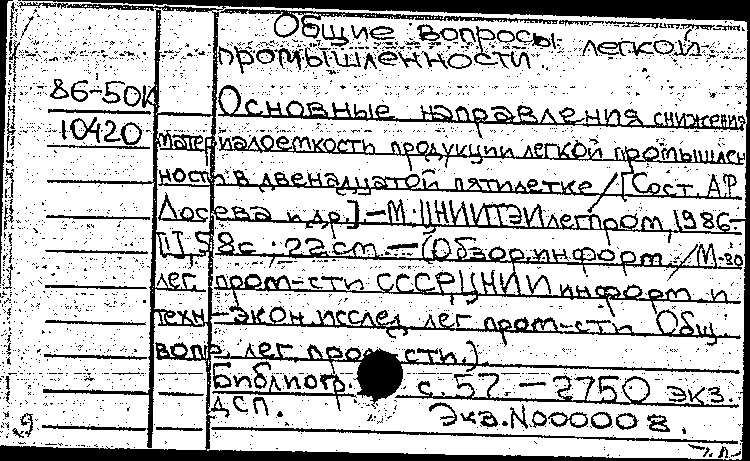 Общие вопросы легкой
промышленности
86-50К
Основные направления снижения
10420 материалоемкости продукции легкой промышлен
ности в двенадцатой пятилетке / [Сост. А.Р.
Лосева и др.] - М.: ЦНИИТЭИлегпром, 1986.-
58с.; 22см. - (Обзор. информ. / М-во
лег. пром-сти СССР, ЦНИИ информ. и
техн.-экон. исслед. лег. пром-сти. Общ.
вопр. лег. пром-сти.)
Библиогр. с. 57. - 2750 экз.
ДСП. Экз. N000008.